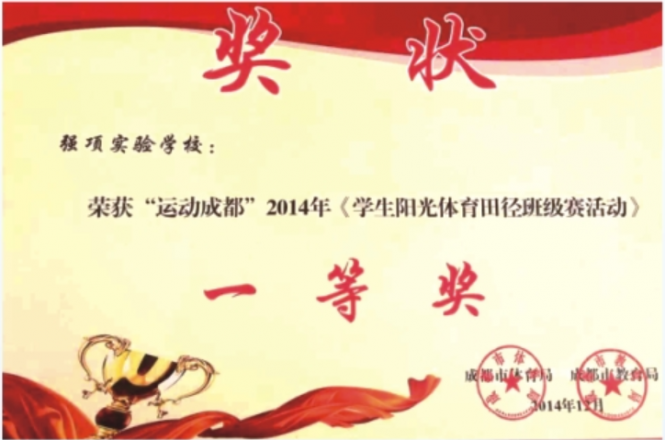 奖状
强项实验学校：
荣获“运动成都”2014年《学生阳光体育田径班级赛活动》
一等奖
成都市体育局 成都市教育局
2014年12月